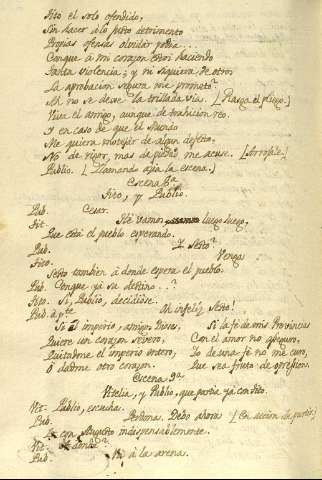 Tito el solo ofendido,
Sin hacer á lo justo detrimento
Propias ofensas olvidar podia...
Conque á mi corazon estoi haciendo
Tanta violencia; y ni siquiera de otros
La aprobacion segura me prometo?
Ah no se deve la trillada via. [Rasga el pliego.]
Viva el amigo, aunque de trahicion reo.
Y en caso de que el Mundo
Me quiera motejar de algun defeto,
No de rigor, mas de piedad me acuse. [Arrojale.]
Publio. [Llamando azia la escena.]
Escena 8ª
Tito, y Publio.
Pub. Cesar.
Tit. Hé vamos luego luego,
Que está el pueblo esperando.
Pub. Y Sesto?
Tito. Venga
Sesto tambien á donde espera el pueblo.
Pub. Conque ya su destino..?
Tito. Si, Publio, decidióse.
Pub. á pte Oh infeliz Sesto!
Si al imperio, amigos Dioses,
Quiere un corazon severo,
Quitadme el imperio entero,
O dadme otro corazon.
Si la fé de mis Provincias
Con el amor no aseguro,
Yo de una fé no me curo,
Que sea fruto de opresion.
Escena 9ª
Vitelia, y Publio, que partia ya condito.
Vit. Publio, escucha.
Pub. Perdona. Debo ahora [En accion de partir]
con Augusto indispensablemente.
Vit. A donde?
Pub. á la arena.